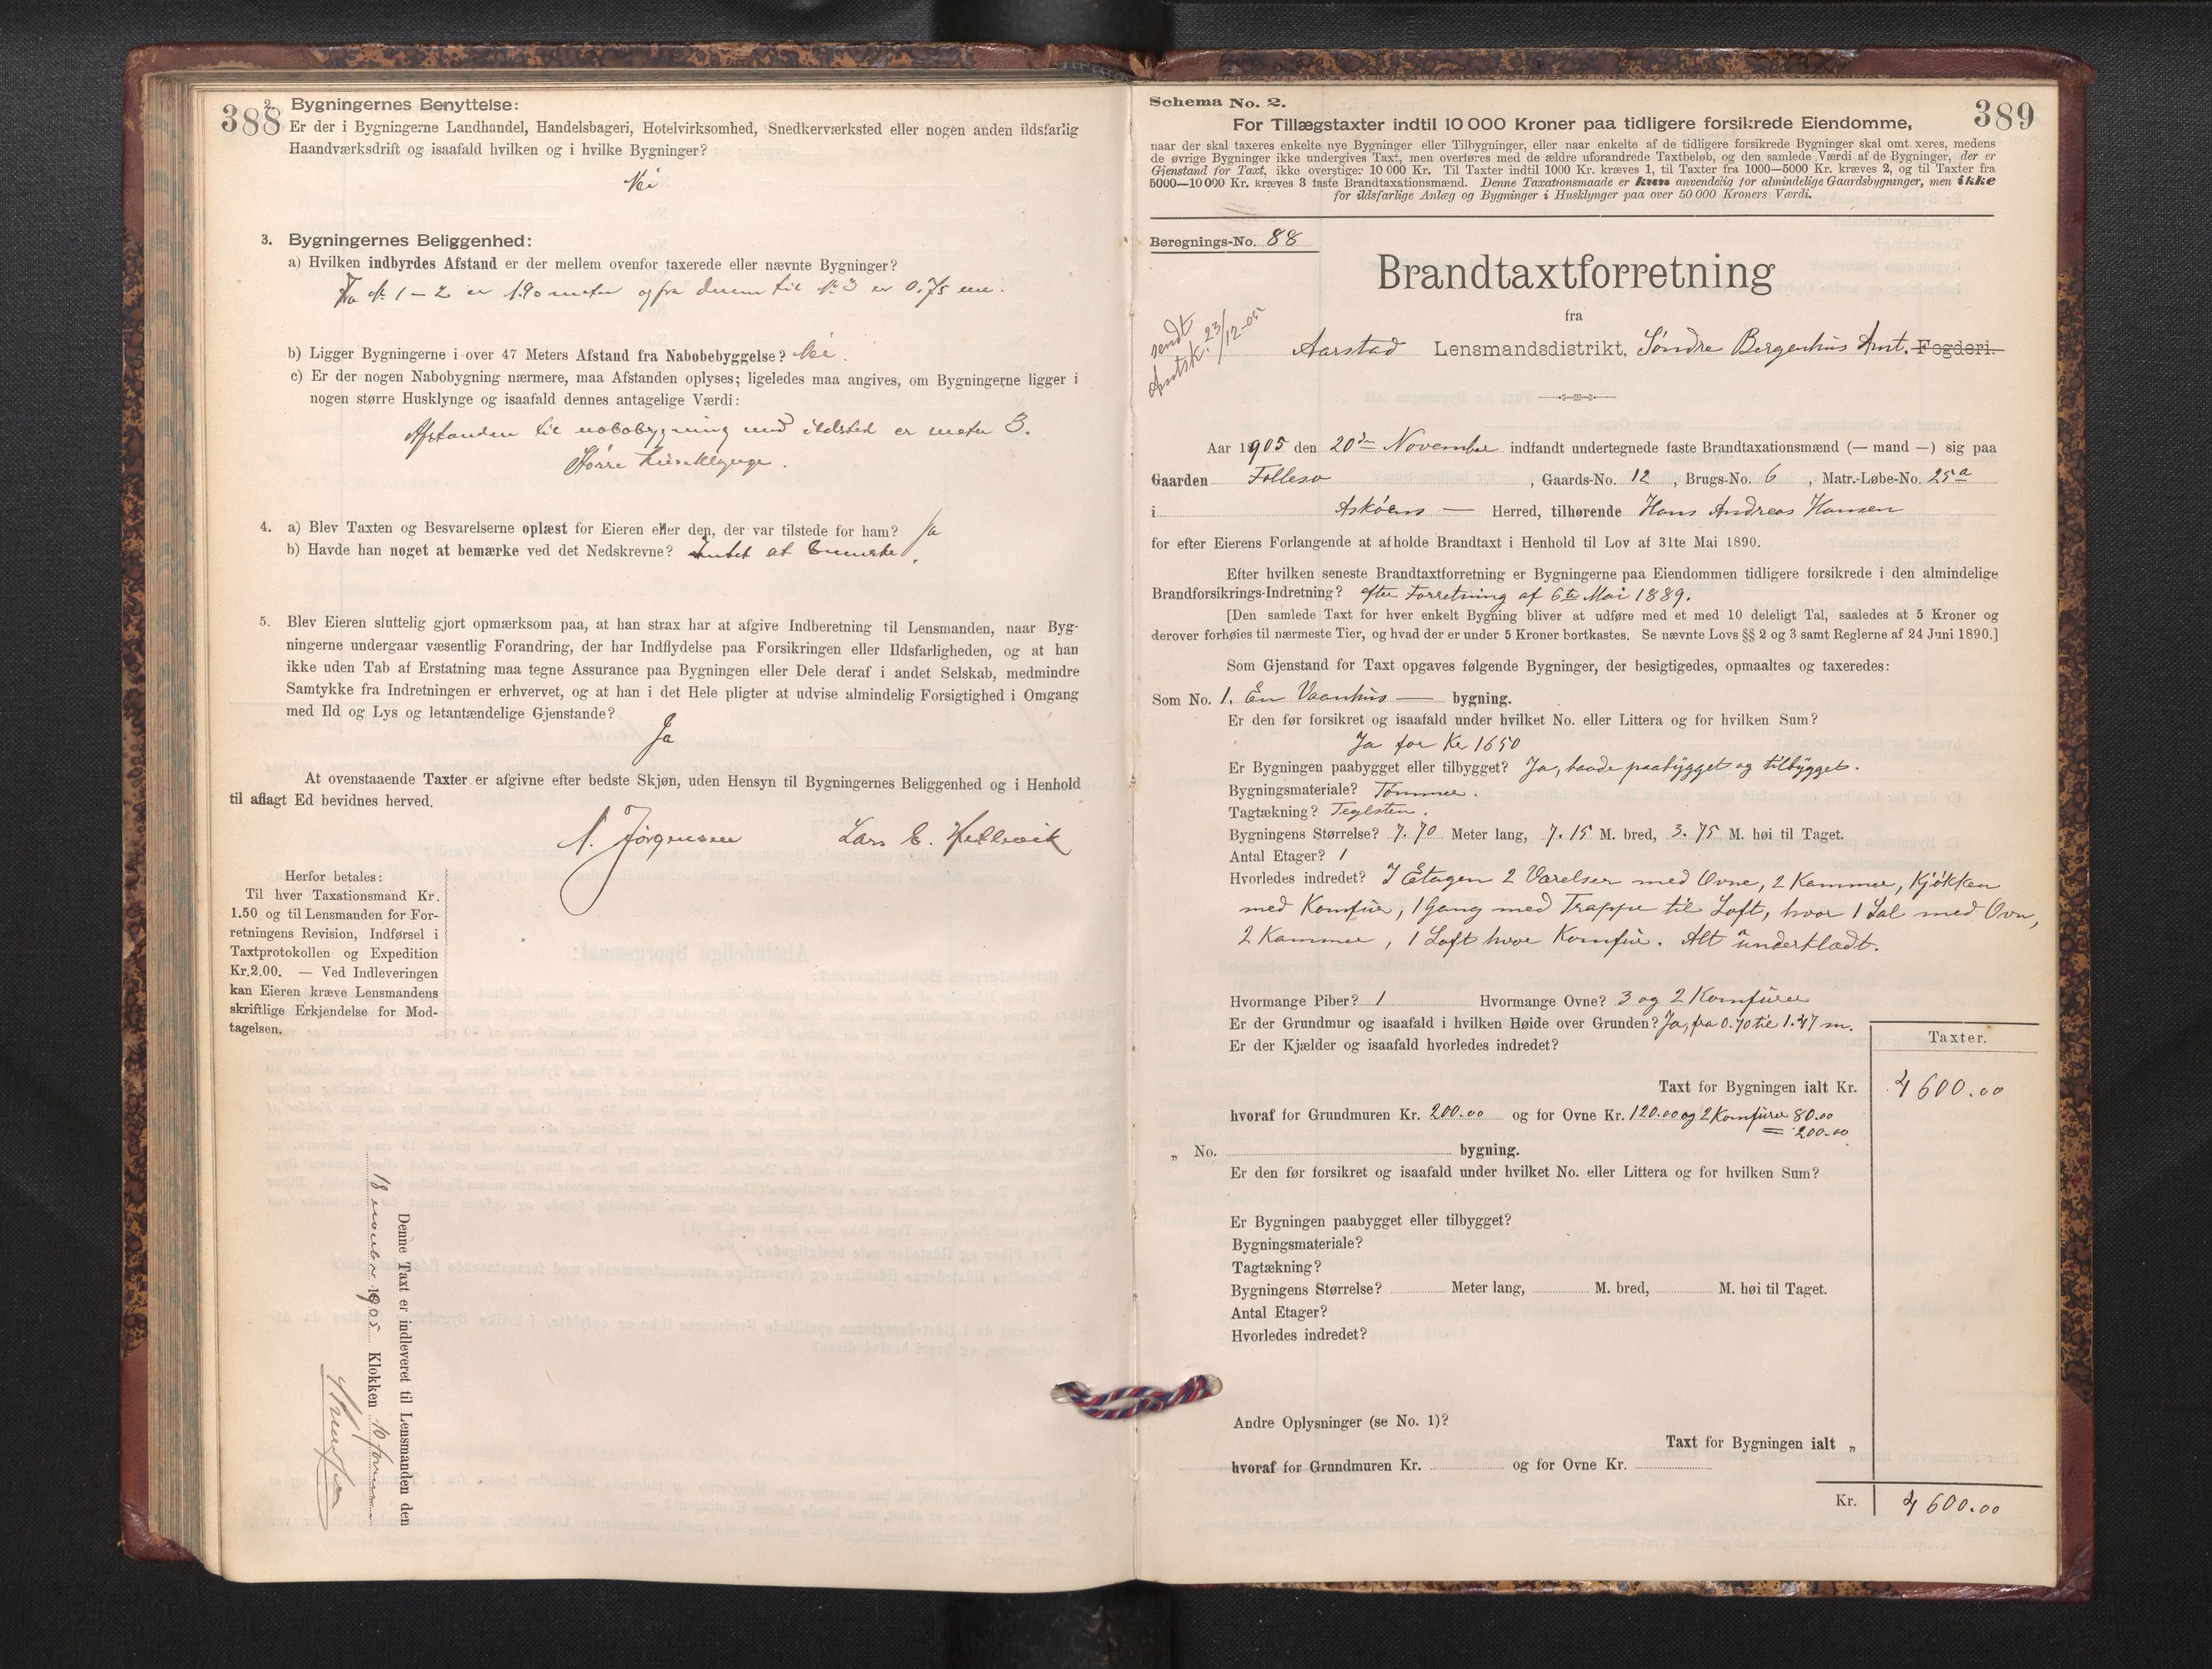 388
2. Bygningernes Benyttelse:
Er der i Bygningerne Landhandel, Handelsbageri, Hotelvirksomhed, Snedkerværksted eller nogen anden ildsfarlig
Haandværksdrift og isaafald hvilken og i hvilke Bygninger?
Nei
3. Bygningernes Beliggenhed:
a) Hvilken indbyrdes Afstand er der mellem ovenfor taxerede eller nævnte Bygninger?
Fra N. 1 – 2 er 1.90 meter og fra denne til N. 3 er 0.75 cm.
b) Ligger Bygningerne i over 47 Meters Afstand fra Nabobebyggelse? Nei.
c) Er der nogen Nabobygning nærmere, maa Afstanden oplyses; ligeledes maa angives, om Bygningerne ligger i
nogen større Husklynge og isaafald dennes antagelige Værdi:
Afstanden til nabobygning med ildsted er meter 3.
Større Huseklynge.
4. a) Blev Taxten og Besvarelserne oplæst for Eieren eller den, der var tilstede for ham? Ja
b) Havde han noget at bemærke ved det Nedskrevne? Intet at bemærke.
5. Blev Eieren sluttelig gjort opmærksom paa, at han strax har at afgive Indberetning til Lensmanden, naar Byg-
ningerne undergaar væsentlig Forandring, der har Indflydelse paa Forsikringen eller Ildsfarligheden, og at han
ikke uden Tab af Erstatning maa tegne Assurance paa Bygningen eller Dele deraf i andet Selskab, medmindre
Samtykke fra Indretningen er erhvervet, og at han i det Hele pligter at udvise almindelig Forsigtighed i Omgang
med Ild og Lys og letantændelige Gjenstande?
Ja
At ovenstaaende Taxter er afgivne efter bedste Skjøn, uden Hensyn til Bygningernes Beliggenhed og i Henhold
til aflagt Ed bevidnes herved.
N. Jørgensen Lars E. Hetlevik
Herfor betales:
Til hver Taxationsmand Kr.
1.50 og til Lensmanden for For-
retningens Revision, Indførsel i
Taxtprotokollen og Expedition
Kr. 2.00. — Ved Indleveringen
kan Eieren kræve Lensmandens
skriftlige Erkjendelse for Mod-
tagelsen.
Denne Taxt er indleveret til Lensmanden den
18 1905 Klokken 10
389
Schema No. 2.
For Tillægstaxter indtil 10 000 Kroner paa tidligere forsikrede Eiendomme,
naar der skal taxeres enkelte nye Bygninger eller Tilbygninger, eller naar enkelte af de tidligere forsikrede Bygninger skal omt xeres, medens
de øvrige Bygninger ikke undergives Taxt, men overføres med de ældre uforandrede Taxtbeløb, og den samlede Værdi af de Bygninger, der er
Gjenstand for Taxt, ikke overstiger 10 000 Kr. Til Taxter indtil 1000 Kr. kræves 1, til Taxter fra 1000—5000 Kr. kræves 2, og til Taxter fra
5000—10 000 Kr. kræves 3 faste Brandtaxationsmænd. Denne Taxationsmaade er kun anvendelig for almindelige Gaardsbygninger, men ikke
for ildsfarlige Anlæg og Bygninger i Husklynger paa over 50 000 Kroners Værdi.
Beregnings-No. 88
Brandtaxtforretning
fra
sendt
Amtsk. 23/12-05
Aarstad Lensmandsdistrikt, Søndre Bergenhus Amt. Fogderi.
Aar 1905 den 20de November indfandt undertegnede faste Brandtaxationsmænd (— mand —) sig paa
Gaarden Follesø, Gaards-No. 12, Brugs-No. 6, Matr.-Løbe-No. 25a
i Askøens — Herred, tilhørende Hans Andreas Hansen
for efter Eierens Forlangende at afholde Brandtaxt i Henhold til Lov af 31te Mai 1890.
Efter hvilken seneste Brandtaxtforretning er Bygningerne paa Eiendommen tidligere forsikrede i den almindelige
Brandforsikrings-Indretning? efter Forretning af 6te Mai 1889.
[Den samlede Taxt for hver enkelt Bygning bliver at udføre med et med 10 deleligt Tal, saaledes at 5 Kroner og
derover forhøies til nærmeste Tier, og hvad der er under 5 Kroner bortkastes. Se nævnte Lovs §§ 2 og 3 samt Reglerne af 24 Juni 1890.]
Som Gjenstand for Taxt opgaves følgende Bygninger, der besigtigedes, opmaaltes og taxeredes:
Som No. 1. En Vaanhus — bygning.
Er den før forsikret og isaafald under hvilket No. eller Littera og for hvilken Sum?
Ja for Kr 1650
Er Bygningen paabygget eller tilbygget? Ja, baade paabygget og tilbygget.
Bygningsmateriale? Tømmer.
Tagtækning? Teglsten.
Bygningens Størrelse? 7.70 Meter lang, 7.15 M. bred, 3.75 M. høi til Taget.
Antal Etager? 1
Hvorledes indredet? I Etagen 2 Værelser med Ovne, 2 Kammer, Kjøkken
med Komfur, 1 Gang med Trappe til Loft, hvor 1 Sal med Ovn,
2 Kammer, 1 Loft hvor Komfur. Alt underkladt.
Hvormange Piber? 1 Hvormange Ovne? 3 og 2 Komfurer
Er der Grundmur og isaafald i hvilken Høide over Grunden? Ja, fra 0.70 til 1.47 m.
Er der Kjælder og isaafald hvorledes indredet?
Taxter.
Taxt for Bygningen ialt Kr. 4600.00
hvoraf for Grundmuren Kr. 200.00 og for Ovne Kr. 120.00 og 2 Komfurer 80.00
= 200.00
„ No. bygning.
Er den før forsikret og isaafald under hvilket No. eller Littera og for hvilken Sum?
Er Bygningen paabygget eller tilbygget?
Bygningsmateriale?
Tagtækning?
Bygningens Størrelse? Meter lang, M. bred, M. høi til Taget.
Antal Etager?
Hvorledes indredet?
Andre Oplysninger (se No. 1)?
Taxt for Bygningen ialt „
hvoraf for Grundmuren Kr. og for Ovne Kr.
Kr. 4600.00